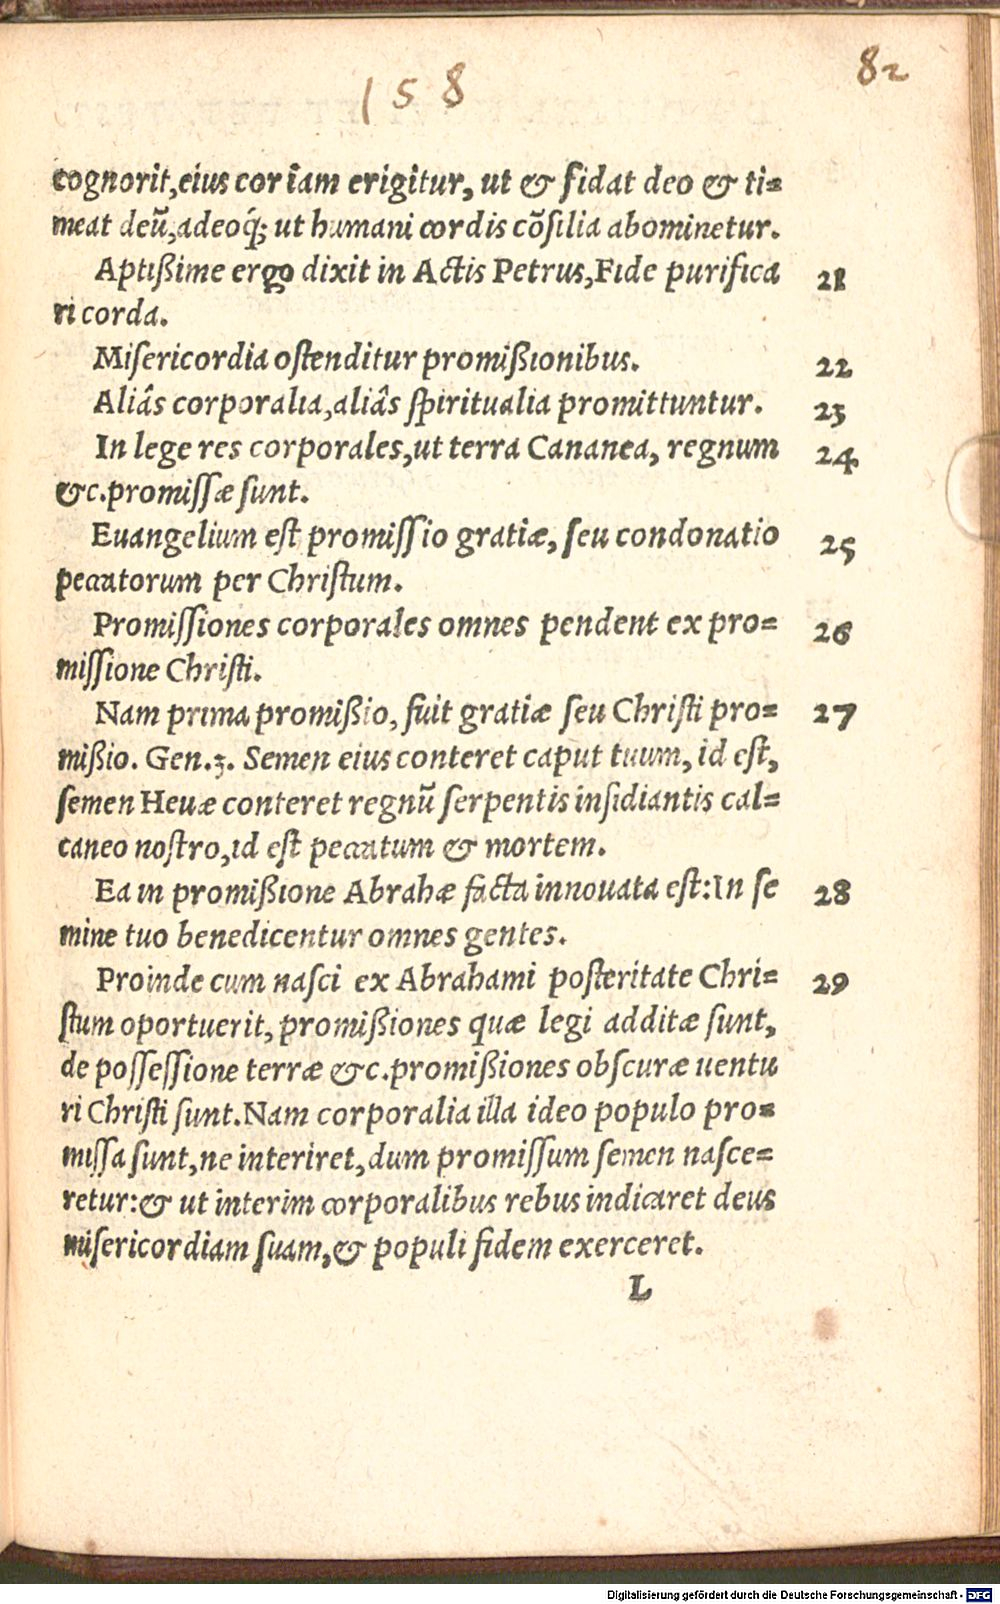 158
82
cognorit,eius cor iam erigitur, ut & fidat deo & ti=
meat deū,adeoq́; ut humani cordis cōſilia abominetur.
Aptißime ergo dixit in Actis Petrus,Fide purifica 21
ri corda.
Miſericordia oſtenditur promißionibus. 22
Aliâs corporalia,aliâs ſpiritualia promittuntur. 23
In lege res corporales,ut terra Cananea, regnum 24
&c.promiſſæ ſunt.
Euangelium eſt promiſſio gratiæ, ſeu condonatio 25
peccatorum per Chriſtum.
Promiſſiones corporales omnes pendent ex pro= 26
miſſione Chriſti.
Nam prima promißio, fuit gratiæ ſeu Chriſti pro= 27
mißio. Gen.3. Semen eius conteret caput tuum, id eſt,
ſemen Heuæ conteret regnū ſerpentis inſidiantis cal=
caneo noſtro,id eſt peccatum & mortem.
Ea in promißione Abrahæ facta innouata eſt:In ſe 28
mine tuo benedicentur omnes gentes.
Proinde cum naſci ex Abrahami poſteritate Chri= 29
ſtum oportuerit, promißiones quæ legi additæ ſunt,
de poſſeſſione terræ &c.promißiones obſcuræ uentu
ri Chriſti ſunt.Nam corporalia illa ideo populo pro=
miſſa ſunt,ne interiret,dum promiſſum ſemen naſce=
retur:& ut interim corporalibus rebus indicaret deus
miſericordiam ſuam,& populi fidem exerceret.
L
Digitalisierung gefördert durch die Deutsche Forschungsgemeinschaft - DFG